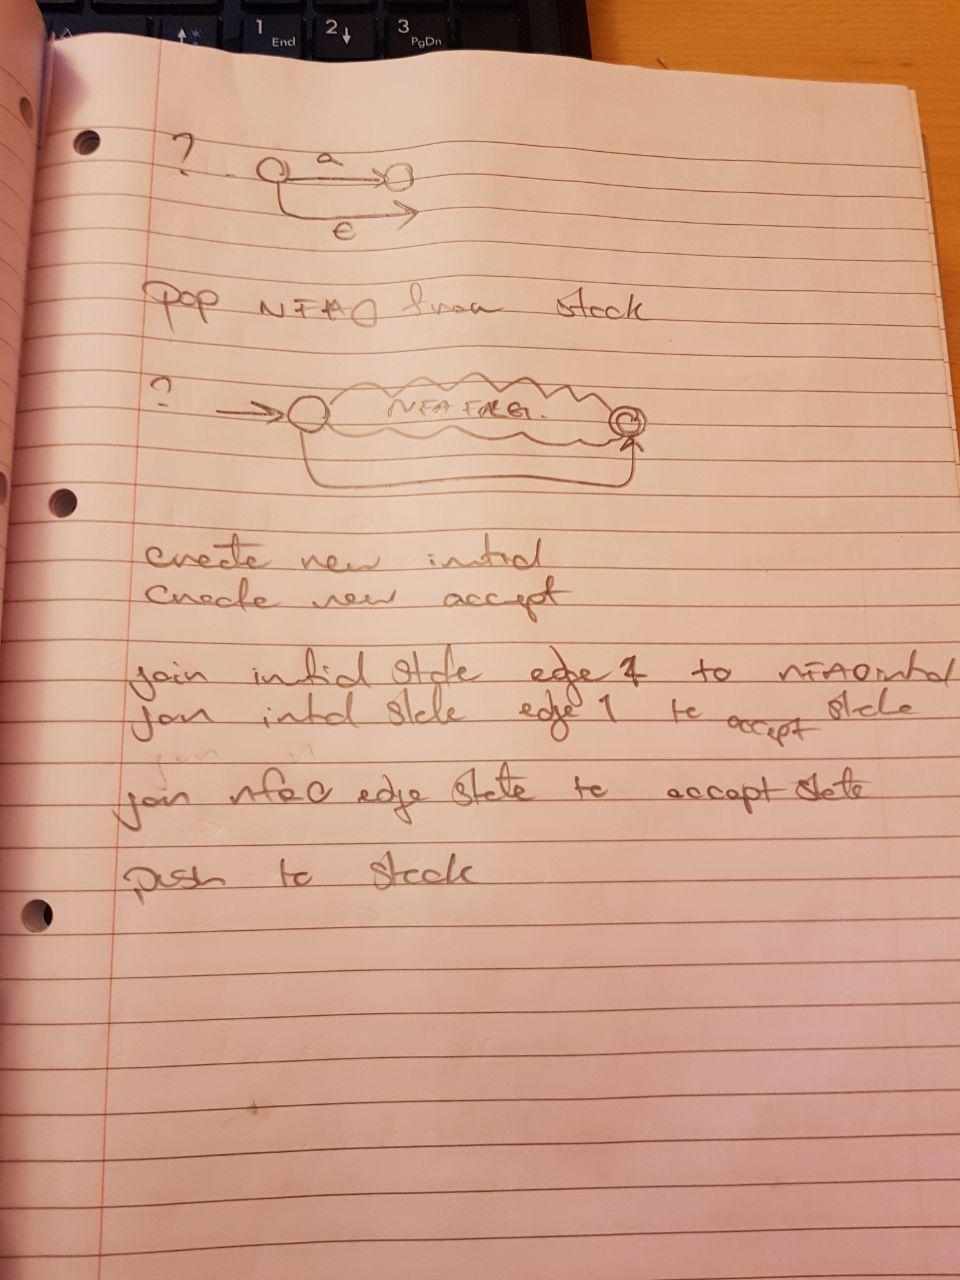 1
End
2
3
PgDn
? a
e
pop NFA0 from stack
? NFA FRG.
create new initial
create new accept
join initial state edge 1 to NFA0 initial
join initial state edge 1 to accept state
join nfa0 edge state to accept state
push to stack